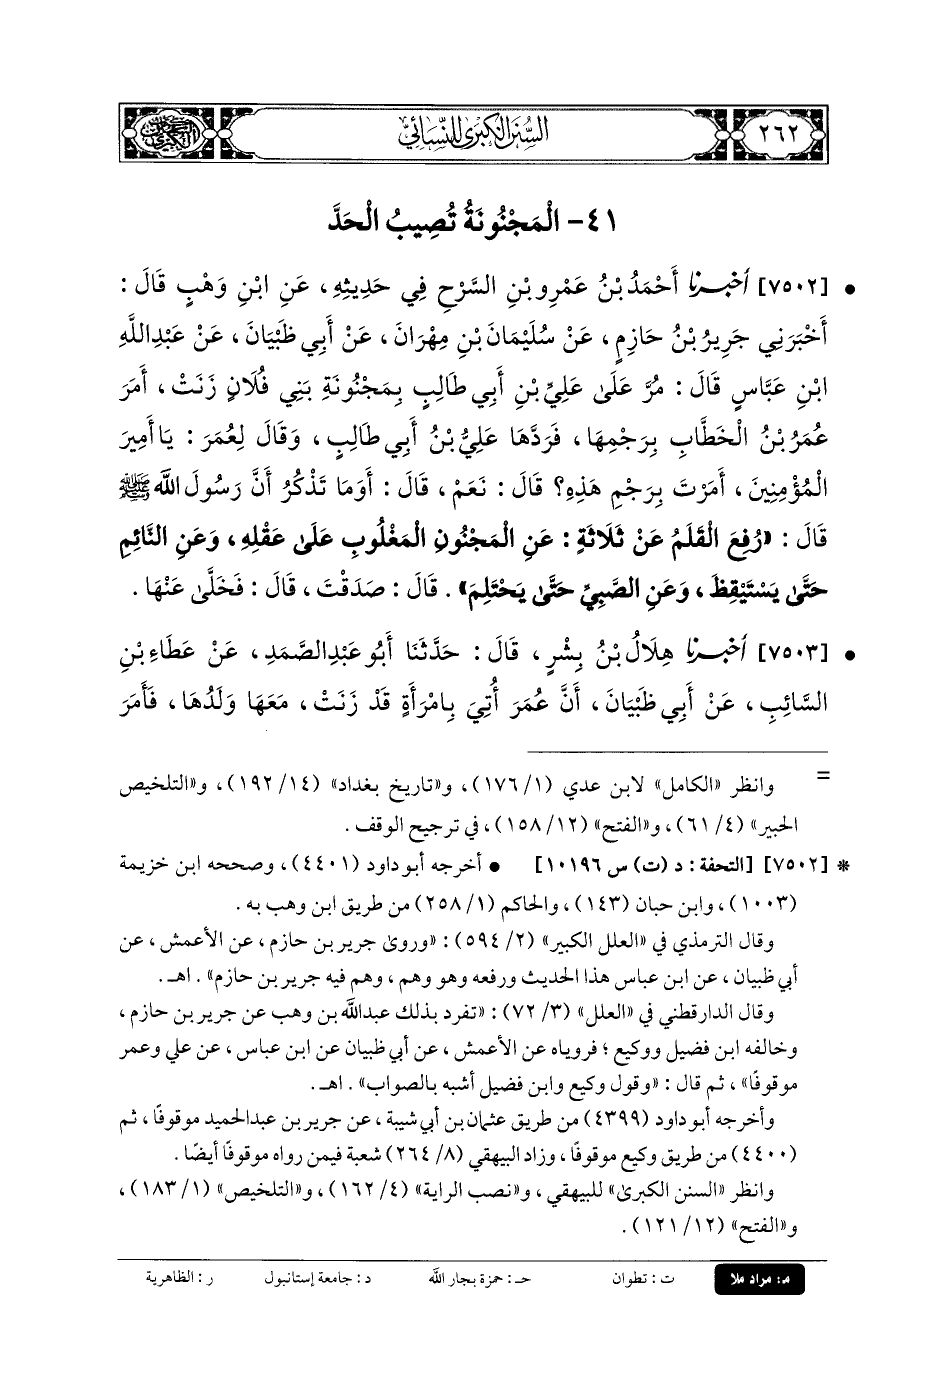 ٢٦٢
السُّنَنُ الكُبْرَى لِلنَّسَائِيِّ
٤١- الْمَجْنُونَةُ تُصِيبُ الْحَدَّ
• [٧٥٠٢] أخبرنا أَحْمَدُ بْنُ عَمْرِو بْنِ السَّرْحِ فِي حَدِيثِهِ، عَنِ ابْنِ وَهْبٍ قَالَ:
أَخْبَرَنِي جَرِيرُ بْنُ حَازِمٍ، عَنْ سُلَيْمَانَ بْنِ مِهْرَانَ، عَنْ أَبِي ظَبْيَانَ، عَنْ عَبْدِاللَّهِ
ابْنِ عَبَّاسٍ قَالَ: مُرَّ عَلَى عَلِيِّ بْنِ أَبِي طَالِبٍ بِمَجْنُونَةِ بَنِي فُلَانٍ زَنَتْ، أَمَرَ
عُمَرُ بْنُ الْخَطَّابِ بِرَجْمِهَا، فَرَدَّهَا عَلِيُّ بْنُ أَبِي طَالِبٍ، وَقَالَ لِعُمَرَ: يَا أَمِيرَ
الْمُؤْمِنِينَ، أَمَرْتَ بِرَجْمِ هَذِهِ؟ قَالَ: نَعَمْ، قَالَ: أَوَمَا تَذْكُرُ أَنَّ رَسُولَ اللَّهِ ﷺ
قَالَ: «رُفِعَ الْقَلَمُ عَنْ ثَلَاثَةٍ: عَنِ الْمَجْنُونِ الْمَغْلُوبِ عَلَى عَقْلِهِ، وَعَنِ النَّائِمِ
حَتَّى يَسْتَيْقِظَ، وَعَنِ الصَّبِيِّ حَتَّى يَحْتَلِمَ». قَالَ: صَدَقْتَ، قَالَ: فَخَلَّى عَنْهَا.
• [٧٥٠٣] أخبرنا هِلَالُ بْنُ بِشْرٍ، قَالَ: حَدَّثَنَا أَبُو عَبْدِالصَّمَدِ، عَنْ عَطَاءِ بْنِ
السَّائِبِ، عَنْ أَبِي ظَبْيَانَ، أَنَّ عُمَرَ أُتِيَ بِامْرَأَةٍ قَدْ زَنَتْ، مَعَهَا وَلَدُهَا، فَأَمَرَ
= وانظر «الكامل» لابن عدي (١/ ١٧٦)، و«تاريخ بغداد» (١٤/ ١٩٢)، و«التلخيص
الحبير» (٤/ ٦١)، و«الفتح» (١٢/ ١٥٨)، في ترجيح الوقف.
* [٧٥٠٢] [التحفة: د (ت) س ١٠١٩٦] • أخرجه أبو داود (٤٤٠١)، وصححه ابن خزيمة
(١٠٠٣)، وابن حبان (١٤٣)، والحاكم (١/ ٢٥٨) من طريق ابن وهب به.
وقال الترمذي في «العلل الكبير» (٢/ ٥٩٤): «وروى جرير بن حازم، عن الأعمش، عن
أبي ظبيان، عن ابن عباس هذا الحديث ورفعه وهو وهم، وهم فيه جرير بن حازم». اهـ.
وقال الدارقطني في «العلل» (٣/ ٧٢): «تفرد بذلك عبدالله بن وهب عن جرير بن حازم،
وخالفه ابن فضيل ووكيع؛ فروياه عن الأعمش، عن أبي ظبيان عن ابن عباس، عن علي وعمر
موقوفًا»، ثم قال: «وقول وكيع وابن فضيل أشبه بالصواب». اهـ.
وأخرجه أبو داود (٤٣٩٩) من طريق عثمان بن أبي شيبة، عن جرير بن عبدالحميد موقوفًا، ثم
(٤٤٠٠) من طريق وكيع موقوفًا، وزاد البيهقي (٨/ ٢٦٤) شعبة فيمن رواه موقوفًا أيضًا.
وانظر «السنن الكبرى» للبيهقي، و«نصب الراية» (٤/ ١٦٢)، و«التلخيص» (١/ ١٨٣)،
و«الفتح» (١٢/ ١٢١).
م: مراد ملا ت: تطوان حـ: حمزة بجار الله د: جامعة إستانبول ر: الظاهرية